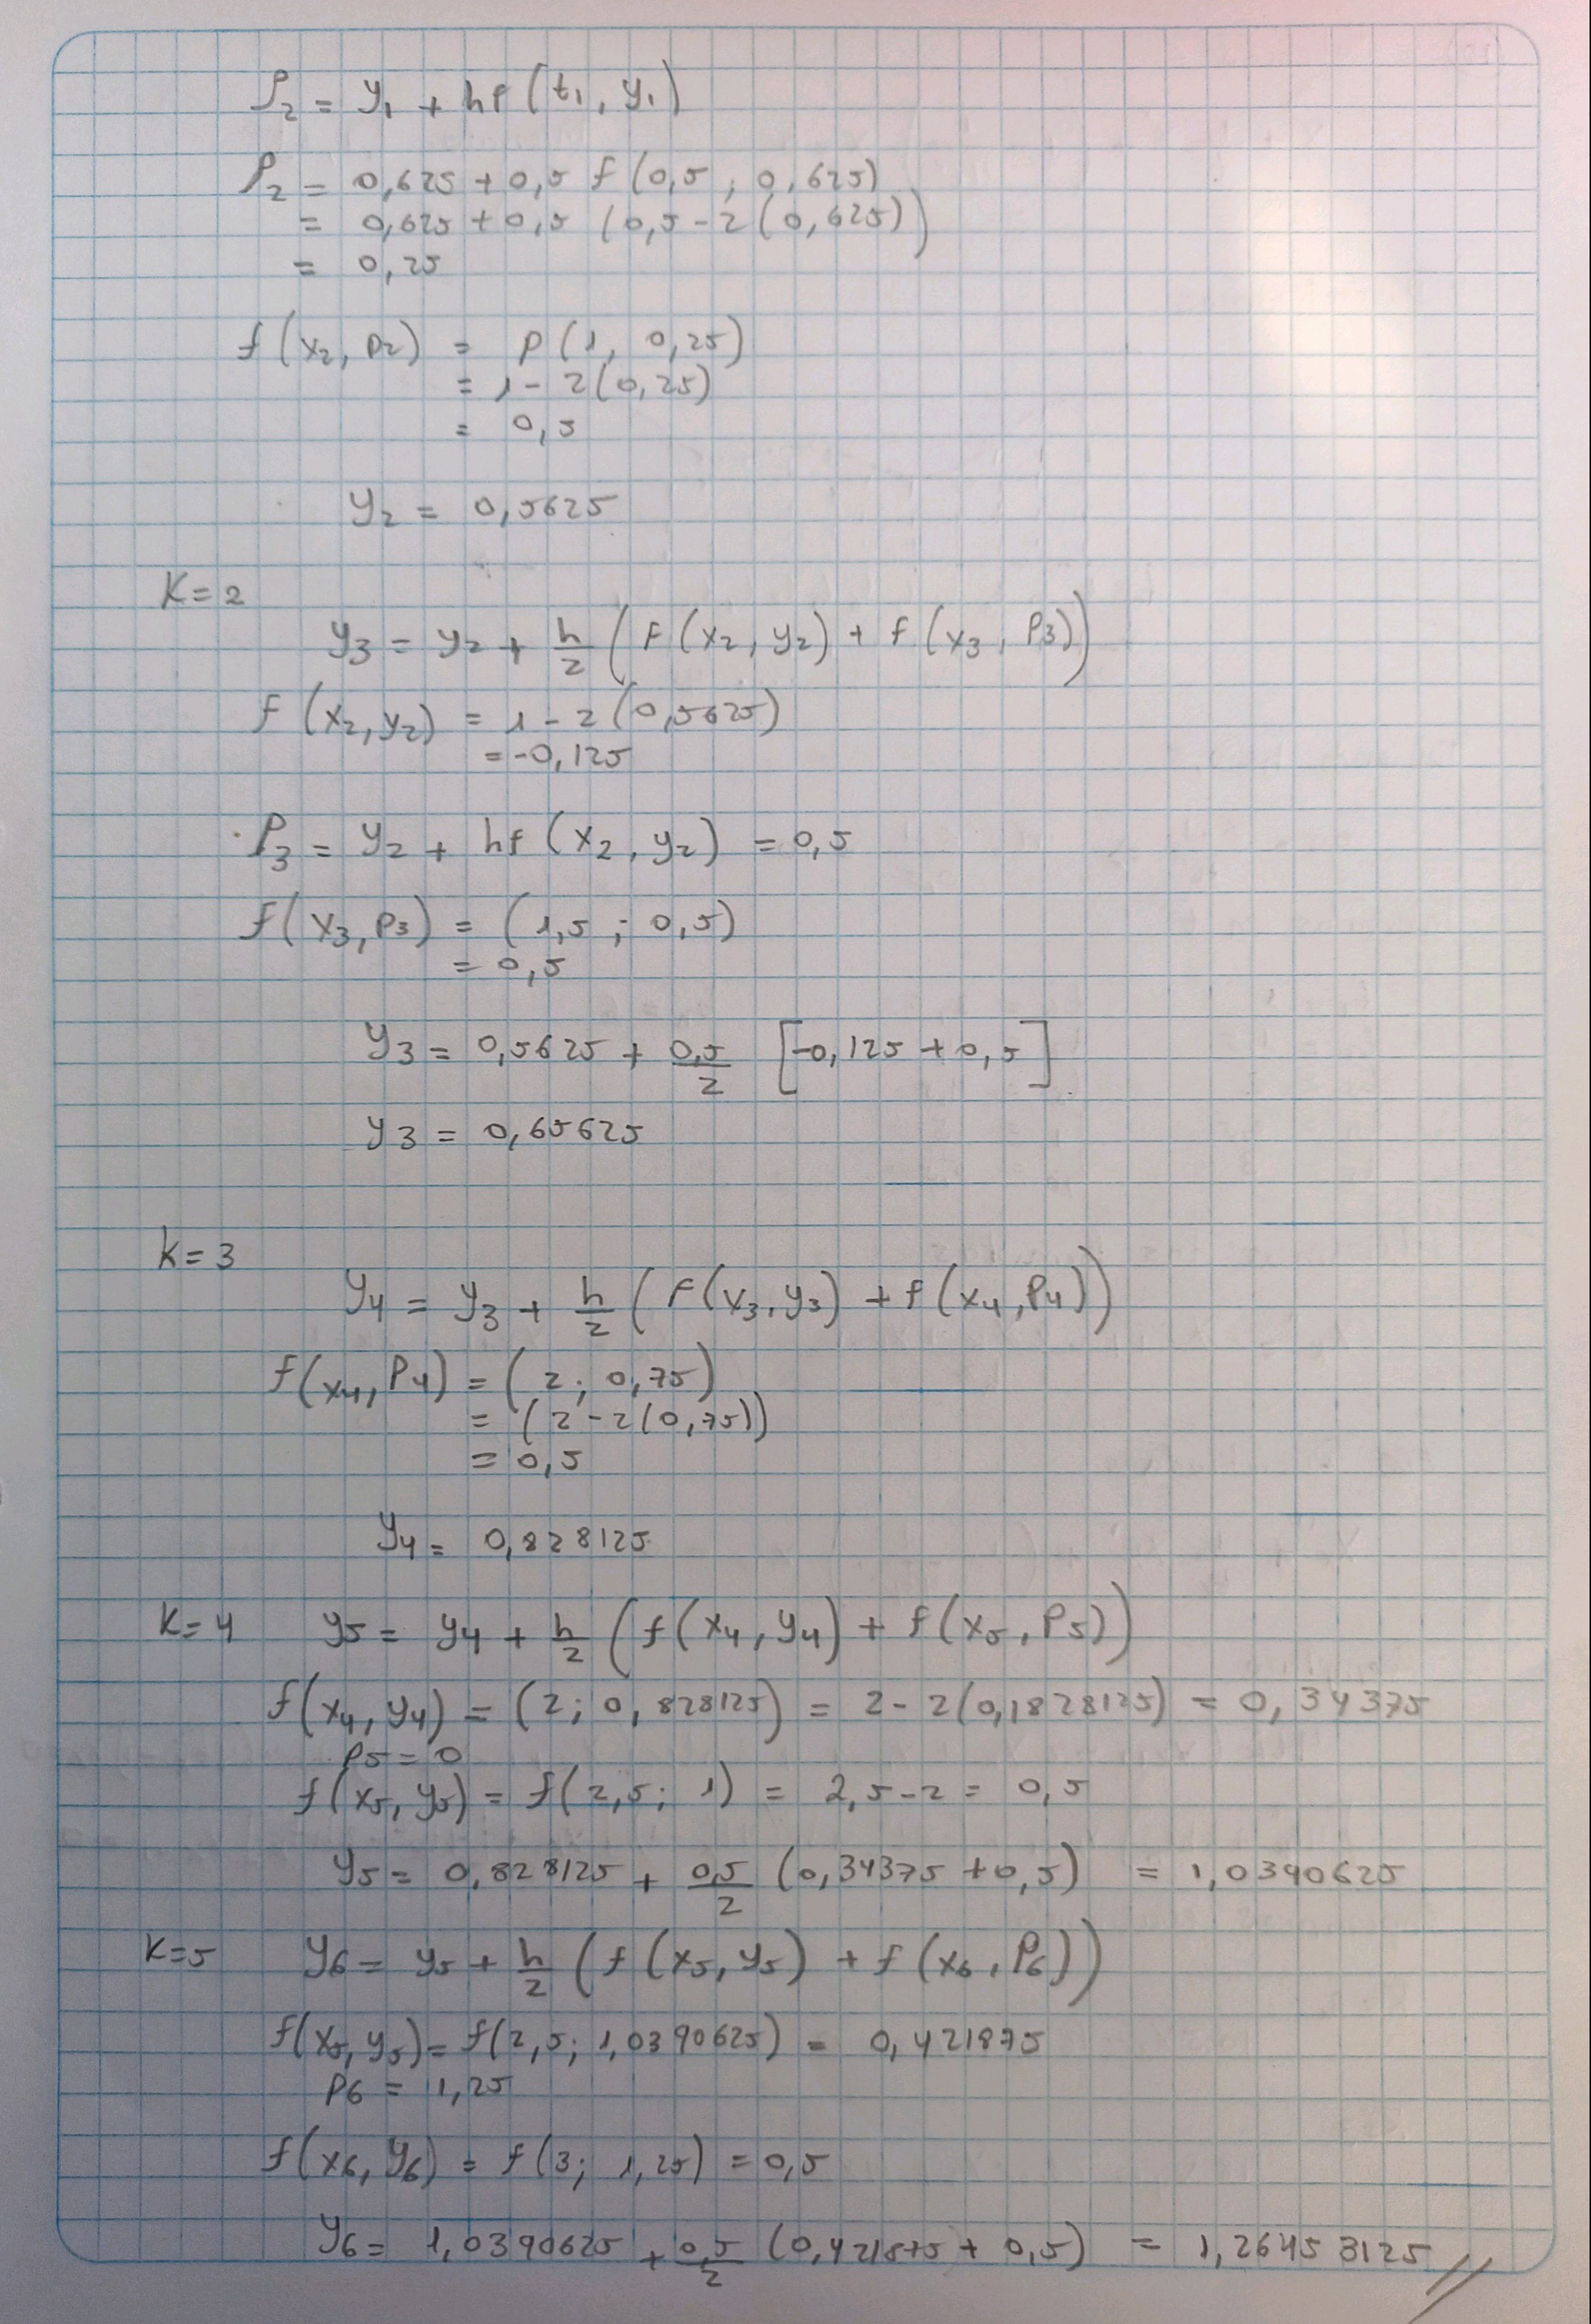 P2 = y1 + hf(t1, y1)
P2 = 0,625 + 0,5 f(0,5 ; 0,625)
= 0,625 + 0,5 (0,5 - 2(0,625))
= 0,25
f(x2, p2) = p(1, 0,25)
= 1 - 2(0,25)
= 0,5
y2 = 0,5625
K=2
y3 = y2 + h/2 (F(x2, y2) + f(x3, P3))
f(x2, y2) = 1 - 2(0,5625)
= -0,125
P3 = y2 + hf(x2, y2) = 0,5
f(x3, p3) = (1,5 ; 0,5)
= 0,5
y3 = 0,5625 + 0,5/2 [-0,125 + 0,5]
y3 = 0,65625
K=3
y4 = y3 + h/2 (F(x3, y3) + f(x4, P4))
f(x4, P4) = (2 ; 0,75)
= (2 - 2(0,75))
= 0,5
y4 = 0,828125
K=4 y5 = y4 + h/2 (f(x4, y4) + f(x5, P5))
f(x4, y4) = (2 ; 0,828125) = 2 - 2(0,1828125) = 0,34375
P5 = 0
f(x5, y5) = f(2,5 ; 1) = 2,5 - 2 = 0,5
y5 = 0,828125 + 0,5/2 (0,34375 + 0,5) = 1,0390625
K=5 y6 = y5 + h/2 (f(x5, y5) + f(x6, P6))
f(x5, y5) = f(2,5 ; 1,0390625) = 0,421875
P6 = 1,25
f(x6, y6) = f(3 ; 1,25) = 0,5
y6 = 1,0390625 + 0,5/2 (0,421875 + 0,5) = 1,26453125 //